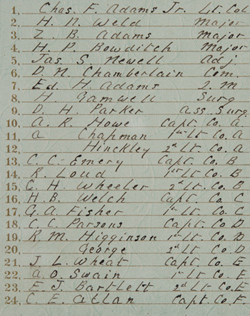 1. Chas. F. Adams Jr. Lt. Col
2. H. N. Weld Major
3. Z. B. Adams Major
4. H. P. Bowditch Major
5. Jas. S. Newell Adj
6. D. H. Chamberlain Com.
7. Ed. H. Adams Q. M.
8. H. Tamwell Surg
9. D. H. Parker Ass. Surg
10. A. R. Howe Capt. Co. A
11. A. Chapman 1st Lt. Co. A
12. Hinckley 2d Lt. Co. A
13. C. C. Emery Capt. Co. B
14. R. Loud 1st Lt. Co. B
15. G. H. Wheeler 2d Lt. Co. B
16. H. B. Welch Capt. Co. C
17. G. A. Fisher 1st Lt. Co. C
18. C. C. Parsons Capt. Co. D
19. R. M. Higginson 1st Lt. Co. D
20. George 2d Lt. Co. D
21. J. L. Wheat Capt. Co. E
22. A. O. Swain 1st Lt. Co. E
23. E. J. Bartlett 2d Lt. Co. E
24. C. E. Allan Capt. Co. F.